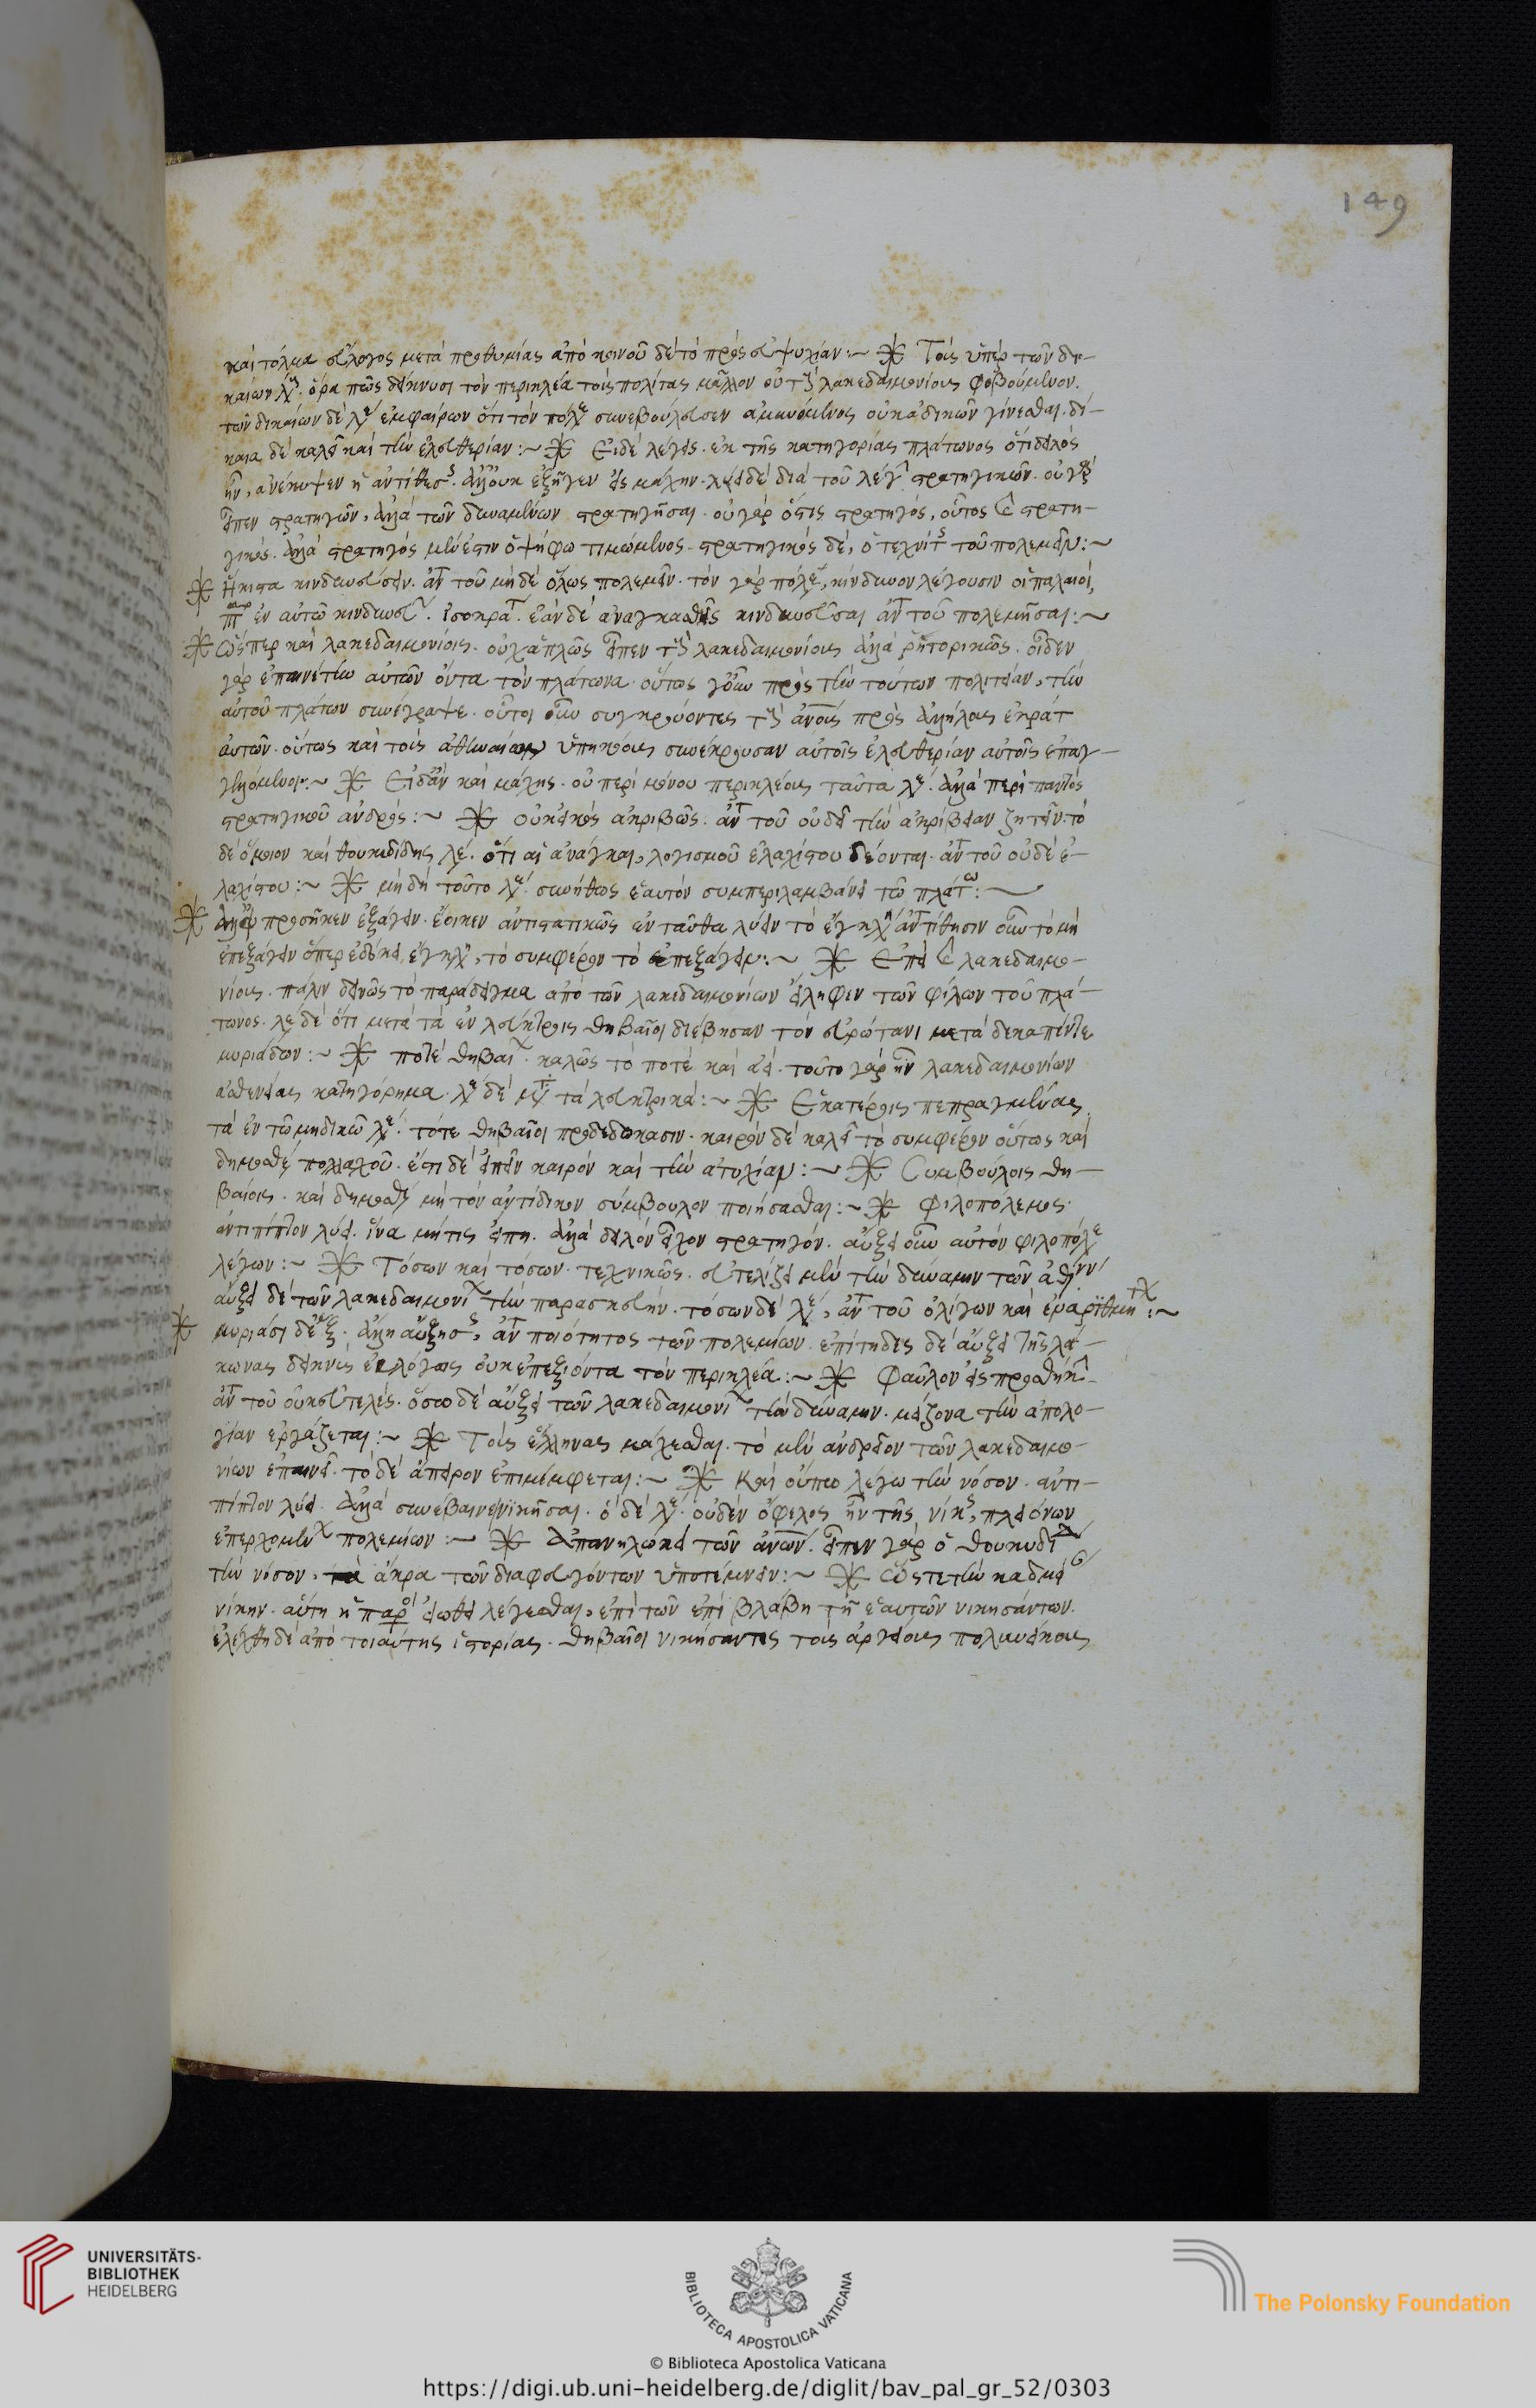 149
καὶ τόλμα εὔλογος μετὰ προθυμίας ἀπὸ κοινοῦ δὲ τὸ πρὸς εὐψυχίαν :~ Τοῖς ὑπὲρ τῶν δι-
καίων λέγει. ὅρα πῶς δείκνυσι τὸν περικλέα τοὺς πολίτας μᾶλλον οὐ τοὺς λακεδαιμονίους φοβούμενον.
τῶν δικαίων δὲ λέγει ὅτι τὸν πόλεμον συνεβούλευσεν ἀμυνόμενος οὐκ ἀδικῶν γίνεσθαι. δί-
καια δὲ καλεῖ καὶ τὴν ἐλευθερίαν :~ Εἰ δὲ λέγεις. ἐκ τῆς κατηγορίας πλάτωνος ὅτι δειλὸς
ἦν, ἀνέκυψεν ἡ ἀντίθεσις. ἀλλ' οὐκ ἐξῆγεν εἰς μάχην. λύει δὲ διὰ τοῦ λέγειν στρατηγικῶν. οὐ γὰρ
εἶπεν στρατηγῶν, ἀλλὰ τῶν δυναμένων στρατηγῆσαι. οὐ γὰρ ὅστις στρατηγός, οὗτος καὶ στρατη-
γικός. ἀλλὰ στρατηγὸς μέν ἐστιν ὁ ψήφω τιμώμενος. στρατηγικὸς δέ, ὁ τεχνίτης τοῦ πολεμεῖν :~
Ἥκιστα κινδυνεύειν. ἀντὶ τοῦ μηδὲ ὅλως πολεμεῖν. τὸν γὰρ πόλεμον, κίνδυνον λέγουσιν οἱ παλαιοί,
ἐν αὐτῶ κινδυνεύειν. ἰσοκράτης. ἐὰν δὲ ἀναγκασθῆς κινδυνεῦσαι ἀντὶ τοῦ πολεμῆσαι :~
Ὥσπερ καὶ λακεδαιμονίοις. οὐχ ἁπλῶς εἶπεν τοὺς λακεδαιμονίους ἀλλὰ ῥητορικῶς. οἶδεν
γὰρ ἐπαινέτην αὐτῶν ὄντα τὸν πλάτωνα. οὕτως γοῦν πρὸς τὴν τούτων πολιτείαν, τὴν
αὐτοῦ πλάτων συνέγραψε. οὗτοι οὖν συγκρούοντες τοὺς ἀνθρώπους πρὸς ἀλλήλους ἐκράτουν
αὐτῶν. οὕτως καὶ τοὺς ἀθηναίων ὑπηκόους συνέκρουσαν αὐτοῖς ἐλευθερίαν αὐτοῖς ἐπαγ-
γελλόμενοι :~ Εἰδεῖν καὶ μάχης. οὐ περὶ μόνου περικλέους ταῦτα λέγει. ἀλλὰ περὶ παντὸς
στρατηγικοῦ ἀνδρός :~ οὐκ εἰκὸς ἀκριβῶς. ἀντὶ τοῦ οὐδὲ τὴν ἀκρίβειαν ζητεῖν. τὸ
δὲ ὅμοιον καὶ θουκυδίδης λέγει. ὅτι αἱ ἀνάγκαι, λογισμοῦ ἐλαχίστου δέονται. ἀντὶ τοῦ οὐδὲ ἐ-
λαχίστου :~ μὴ δὴ τοῦτο λέγε. συνήθως ἑαυτὸν συμπεριλαμβάνει τῶ πλάτωνι :~
Ἀλλ' οὐ προσῆκεν ἐξάγειν. ἔοικεν ἀντιστατικῶς ἐνταῦθα λύειν τὸ ἔγκλημα ἀντίθησιν οὖν τὸ μὴ
ἐπεξάγειν ὅπερ ἐδόκει ἔγκλημα, τὸ συμφέρον τὸ ἐπεξάγειν :~ Ἐπεὶ καὶ λακεδαιμο-
νίους. πάλιν δεινῶς τὸ παράδειγμα ἀπὸ τῶν λακεδαιμονίων εἴληφεν τῶν φίλων τοῦ πλά-
τωνος. λέγει δὲ ὅτι μετὰ τὰ ἐν λεύκτροις θηβαῖοι διέβησαν τὸν εὐρώταν μετὰ δεκαπέντε
μυριάδων :~ ποτὲ θηβαίων. καλῶς τὸ ποτὲ καὶ ἀεί. τοῦτο γὰρ ἦν λακεδαιμονίων
ἀσθενείας κατηγόρημα. λέγει δὲ μετὰ τὰ λευκτρικά :~ Ἑκατέροις πεπραγμένας
τὰ ἐν τῶ μηδικῶ λέγει. τότε θηβαῖοι προδεδώκασιν. καιρὸν δὲ καλεῖ τὸ συμφέρον οὕτως καὶ
δημοσθένης πολλαχοῦ. ἔστι δὲ εἰπεῖν καιρὸν καὶ τὴν ἀτυχίαν :~ Συμβούλοις θη-
βαίοις. καὶ δημοσθένης μὴ τὸν ἀντίδικον σύμβουλον ποιήσασθαι :~ Φιλοπόλεμος.
ἀντιπίπτον λύει. ἵνα μή τις εἴπη. ἀλλὰ δειλὸν εἷλον στρατηγόν. αὔξει οὖν αὐτὸν φιλοπόλεμον
λέγων :~ Τόσων καὶ τόσων. τεχνικῶς. εὐτελίζει μὲν τὴν δύναμιν τῶν ἀθηναίων
αὔξει δὲ τῶν λακεδαιμονίων τὴν παρασκευήν. τόσων δὲ λέγει, ἀντὶ τοῦ ὀλίγων καὶ εὐαριθμήτων :~
μυριάσι δὲ ἕξ. ἄλλη αὔξησις, ἀπὸ ποιότητος τῶν πολεμίων. ἐπίτηδες δὲ αὔξει τοὺς λά-
κωνας δεικνὺς εὐλόγως οὐκ ἐπεξιόντα τὸν περικλέα :~ Φαῦλον εἰς προσθήκην.
ἀντὶ τοῦ οὐκ εὐτελές. ὅσω δὲ αὔξει τῶν λακεδαιμονίων τὴν δύναμιν. μείζονα τὴν ἀπολο-
γίαν ἐργάζεται :~ Τοὺς ἕλληνας μάχεσθαι. τὸ μὲν ἀνδρεῖον τῶν λακεδαιμο-
νίων ἐπαινεῖ. τὸ δὲ ἄπειρον ἐπιμέμφεται :~ Καὶ οὔπω λέγω τὴν νόσον. ἀντι-
πίπτον λύει. ἀλλὰ συνέβαινε νικῆσαι. ὁ δὲ λέγει. οὐδὲν ὄφελος ἦν τῆς νίκης, πλειόνων
ἐπερχομένων πολεμίων :~ Ἀπανηλώκει τῶν ἀνθρώπων. εἶπεν γὰρ ὁ θουκυδίδης
τὴν νόσον, τὰ ἄκρα τῶν διαφευγόντων ὑποτέμνειν :~ Ὥστε τὴν καδμείαν
νίκην. αὕτη ἡ παροιμία εἴωθε λέγεσθαι, ἐπὶ τῶν ἐπὶ βλάβη τῆ ἑαυτῶν νικησάντων.
ἐλέχθη δὲ ἀπὸ τοιαύτης ἱστορίας. θηβαῖοι νικήσαντες τοὺς ἀργείους πολυνείκους
UNIVERSITÄTS-
BIBLIOTHEK
HEIDELBERG
BIBLIOTECA APOSTOLICA VATICANA
The Polonsky Foundation
© Biblioteca Apostolica Vaticana
https://digi.ub.uni-heidelberg.de/diglit/bav_pal_gr_52/0303